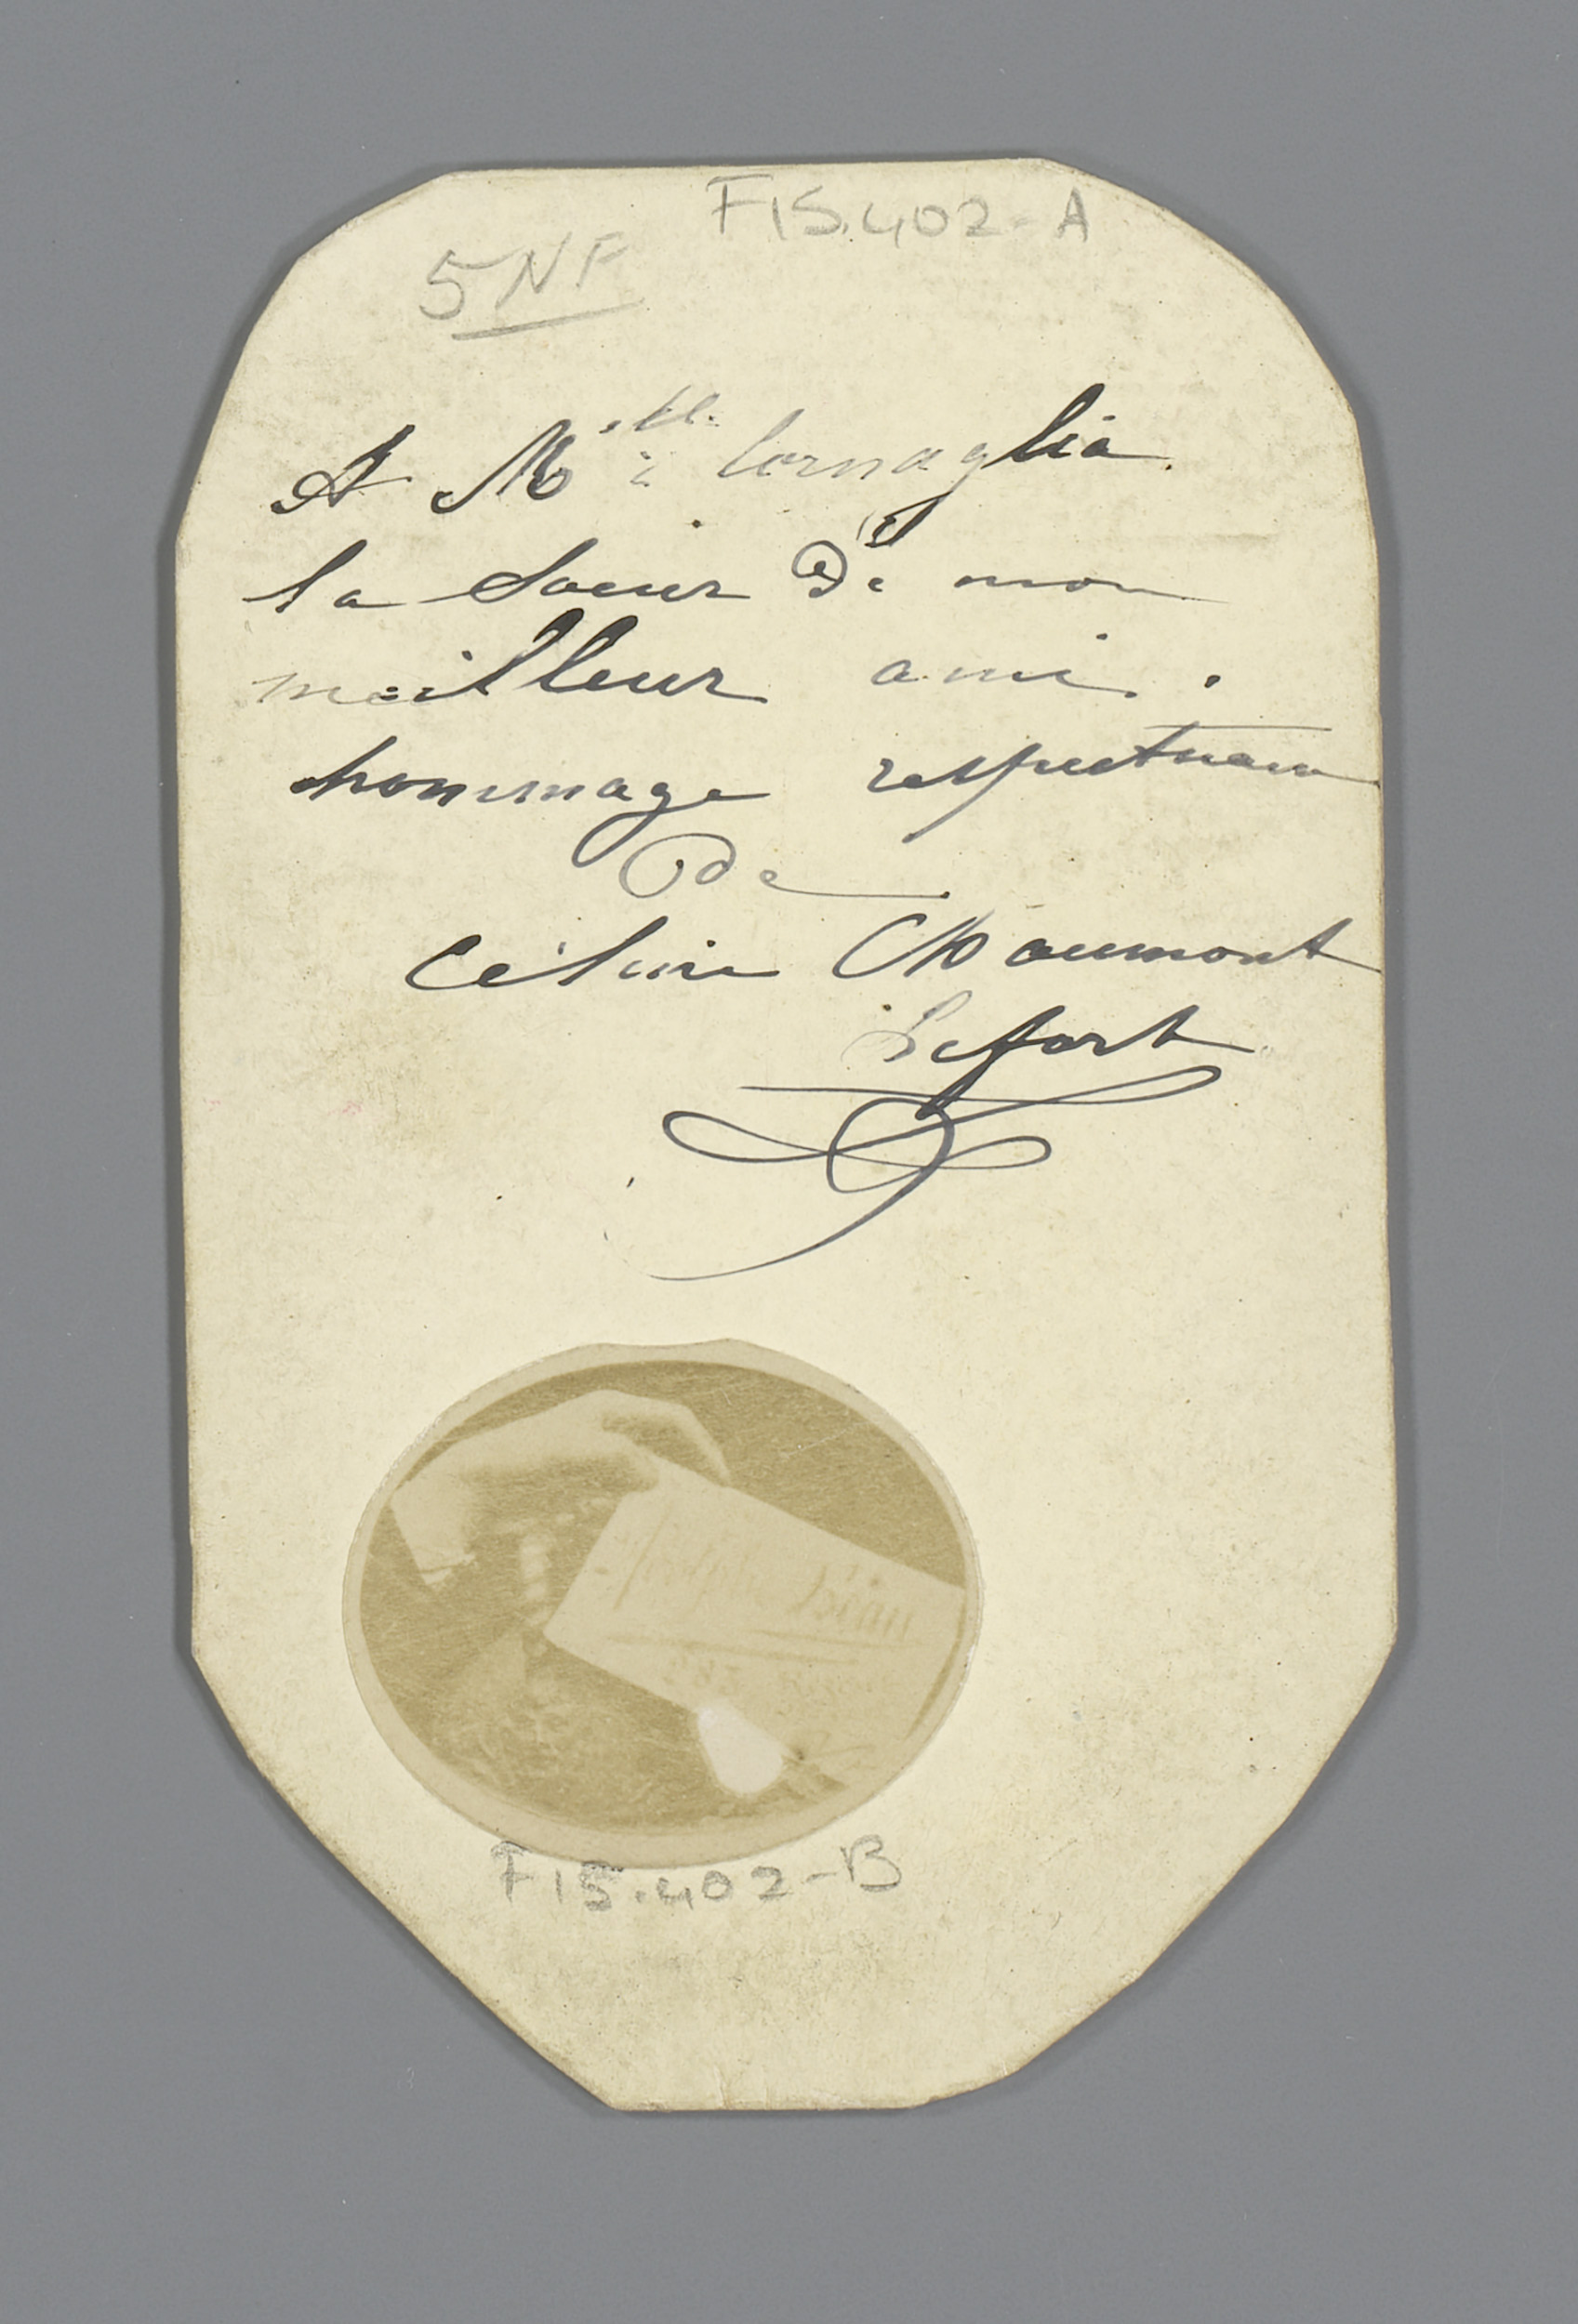 F15.402-A
5 NF
A Melle Cornaglia
la Soeur de mon
meilleur ami.
hommage respectueux
de
Céline Chaumont
Lefort
F15.402-B